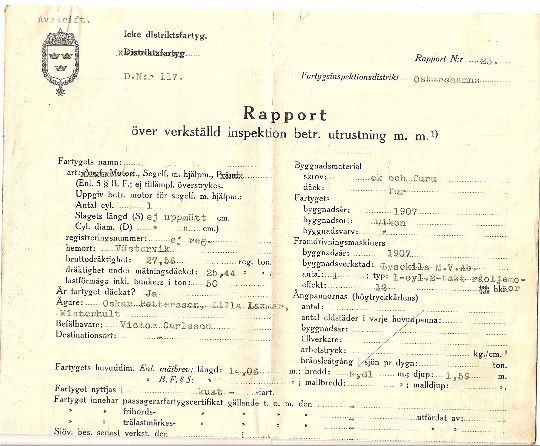 Avskrift.
Icke distriktsfartyg.
Distriktsfartyg
D.N:r 117.
Rapport N:r 23.
Fartygsinspektionsdistrikt Oskarshamns
Rapport
över verkställd inspektion betr. utrustning m. m.¹)
Fartygets namn:
art: Motorf., Segelf. m. hjälpm., Pråmar
(Enl. 5 § B. F.; ej tillämpl. överstrykes.
Uppgiv betr. motor för segelf. m. hjälpm.:
Antal cyl. 1
Slagets längd (S) ej uppmätt cm.
Cyl. diam. (D) " cm.)
registreringsnummer: ej reg.
hemort: Västervik
bruttodräktighet: 27,58 reg. ton.
dräktighet under mätningsdäcket: 25,44 " "
lastförmåga inkl. bunkers i ton: 50
Är fartyget däckat? Ja
Ägare: Oskar Pettersson, Lilla Laxmar,
Misterhult
Befälhavare: Victor Carlsson
Destinationsort:
Byggnadsmaterial
skrov: ek och furu
däck: fur
Fartygets
byggnadsår: 1907
byggnadsort: Viken
byggnadsvarv: "
Framdrivningsmaskinens
byggnadsår: 1907
byggnadsverkstad: Lysekils M.V.AB.
antal: 1 ; typ: 1-cyl.2-takt råoljemo-
effekt: 12 hkr. tor
Ångpannornas (högtryckskärlens)
antal:
antal eldstäder i varje huvudpanna:
byggnadsår:
tillverkare:
arbetstryck: kg./cm.²
bränsleåtgång i sjön pr dygn: ton.
Fartygets huvuddim. Enl. mätbrev: längd: 14,06 m.; bredd: 4,61 m.; djup: 1,59 m.
" B. F. § 5: " " ; mallbredd: " ; malldjup: "
Fartyget nyttjas i kust- fart.
Fartyget innehar passagerarfartygscertifikat gällande t. o. m. den utfärdat av:
" " fribords- " " "
" " trälastmärkes- " " "
Sjöv. bes. senast verkst. den